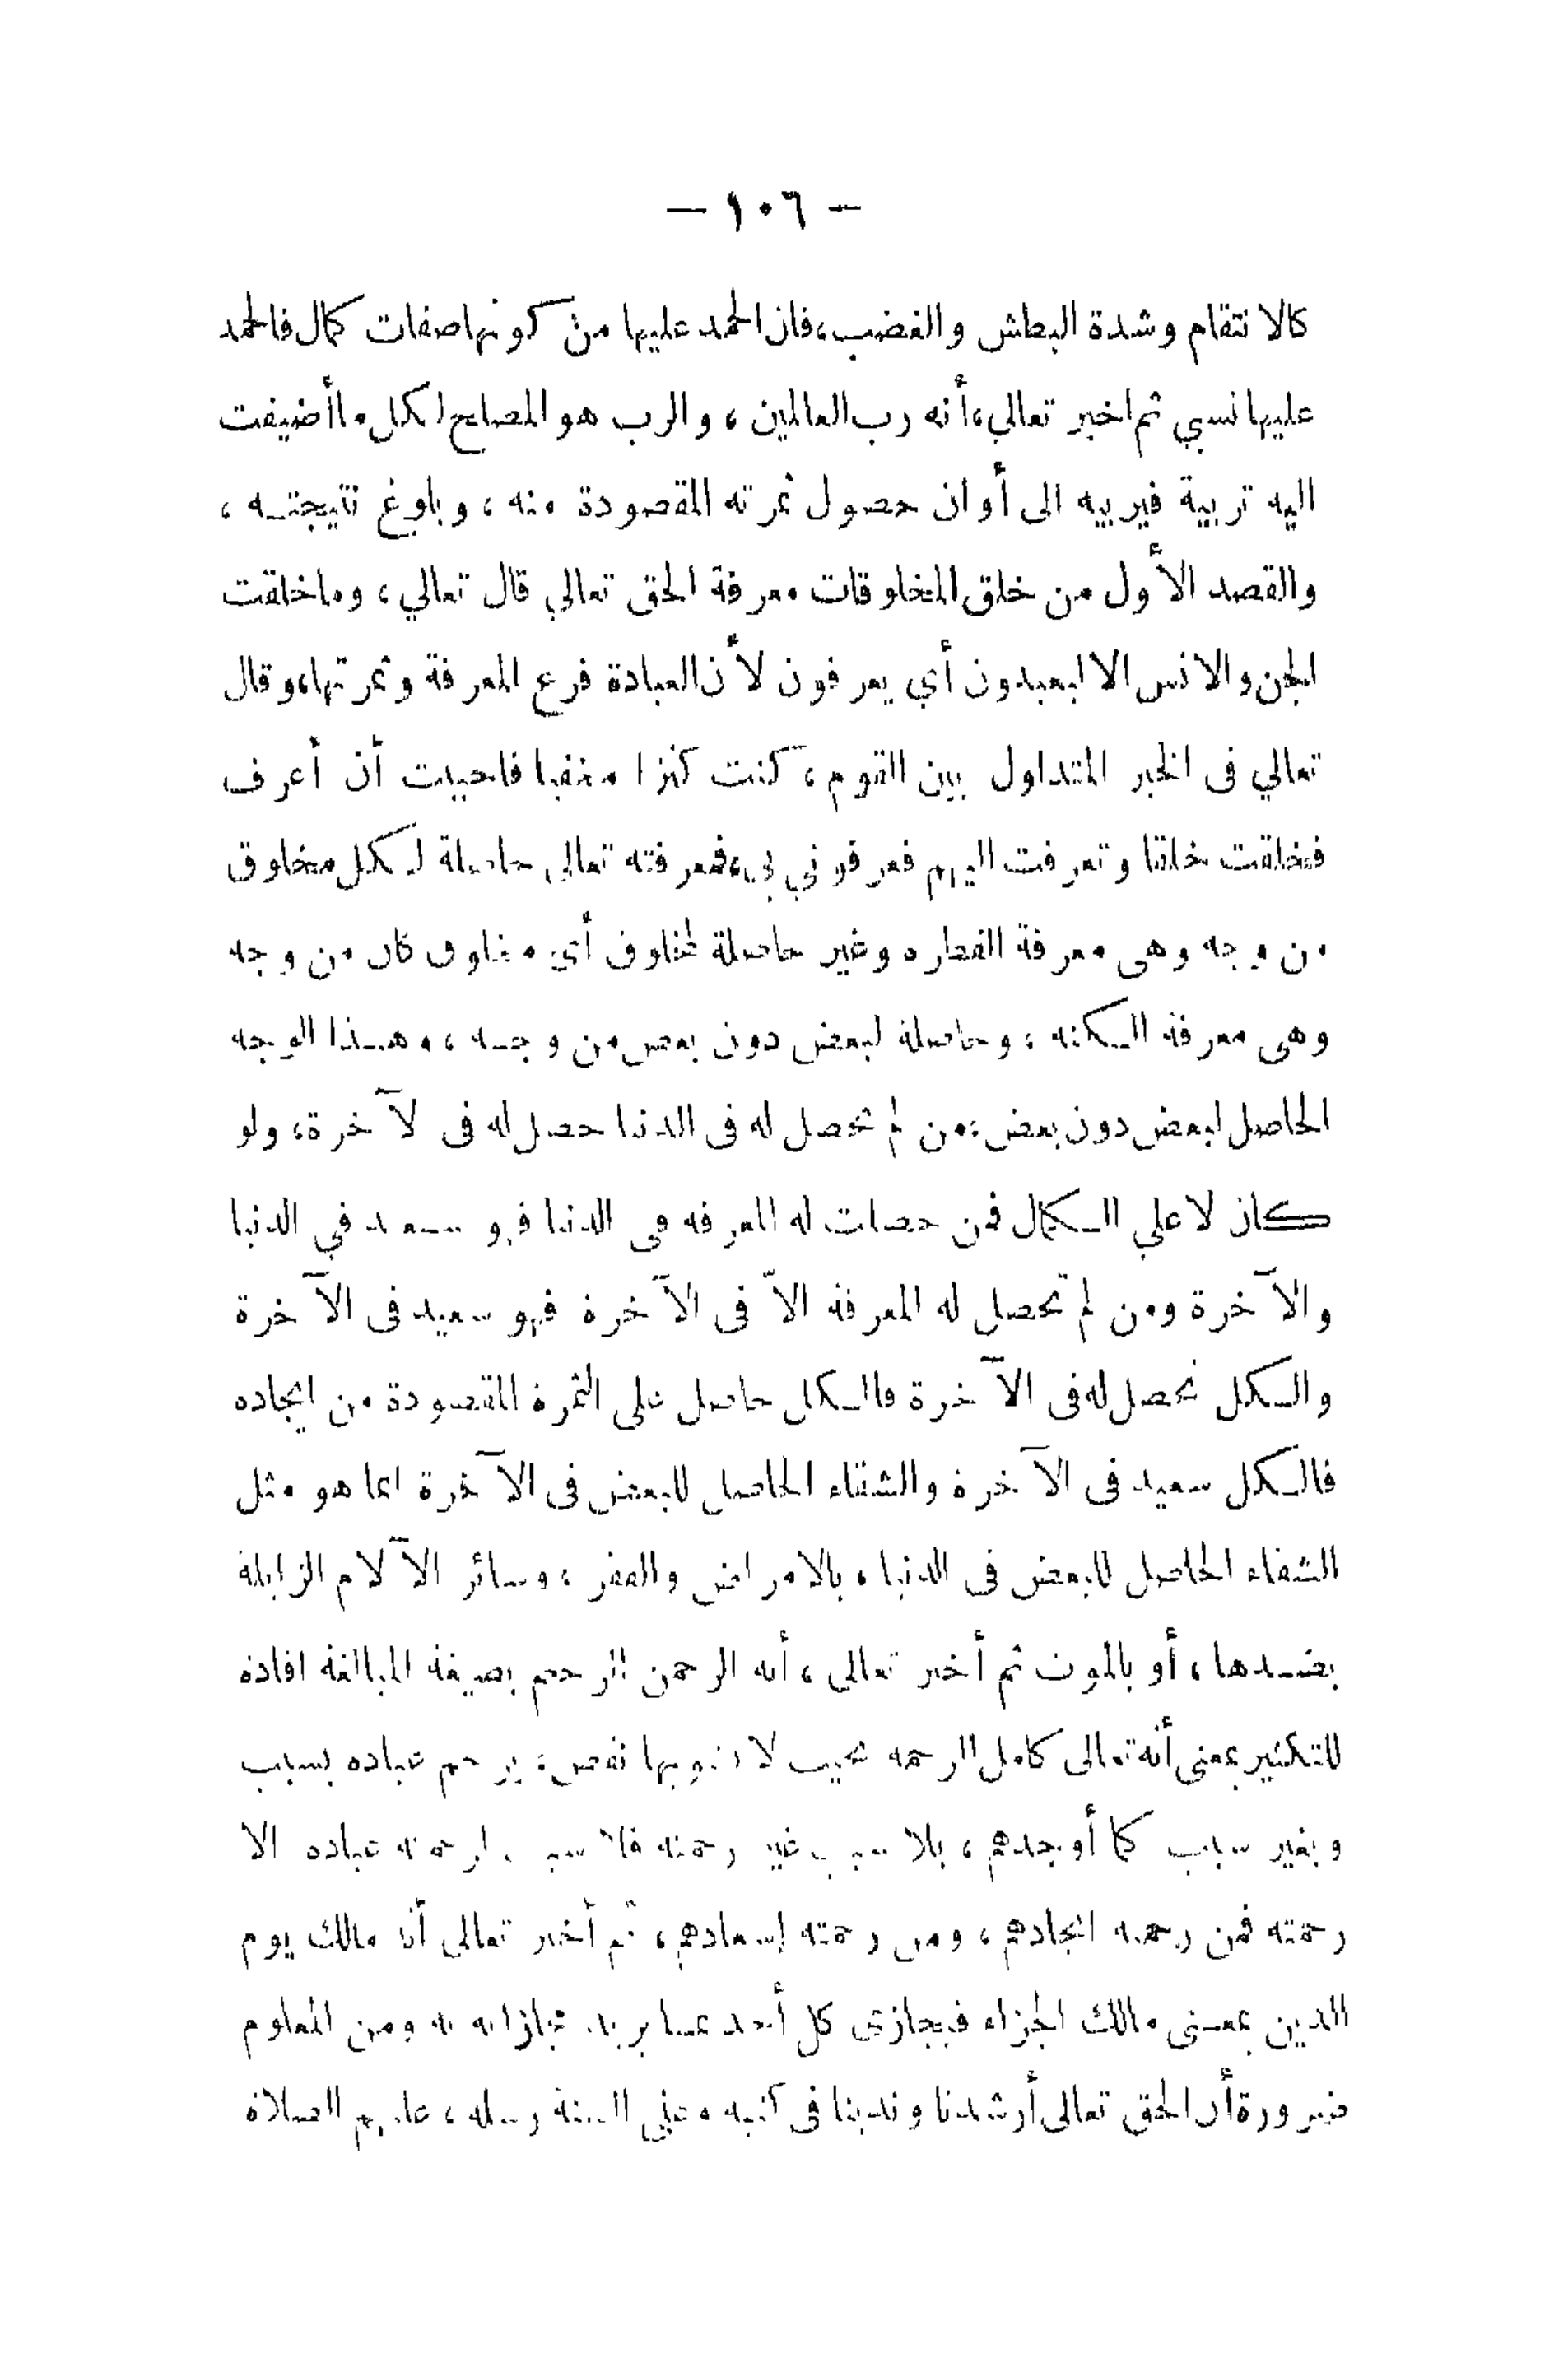 — ١٠٦ —
كالانتقام وشدة البطش والغضب، فان الحمد عليها من كونها صفات كمال فالحمد
عليها نسبي ثم اخبر تعالي، أنه رب العالمين، والرب هو المصلح لكل ما أضيفت
اليه تربية فيربيه الى أوان حصول ثمرته المقصودة منه، وبلوغ نتيجتـه،
والقصد الأول من خلق المخلوقات معرفة الحق تعالي قال تعالي، وماخلقت
الجن والانس الا ليعبدون أي يعرفون لأن العبادة فرع المعرفة وثمرتها، وقال
تعالي فى الخبر المتداول بين القوم، كنت كنزا مخفيا فاحببت أن أعرف
فخلقت خلقا وتعرفت اليهم فعرفوني بي، فمعرفته تعالى حاصلة لكل مخلوق
من وجه وهى معرفة الفطره وغير حاصلة لمخلوق أي مخلوق كان من وجه
وهى معرفة الكنه، وحاصلة لبعض دون بعض من وجـه، وهـذا الوجه
الحاصل لبعض دون بعض، من لم تحصل له فى الدنيا حصل له فى لآخرة، ولو
كان لا علي الكمال فمن حصلت له المعرفه فى الدنيا فهو سـعيد في الدنيا
والآخرة ومن لم تحصل له المعرفة الاّ فى الآخرة فهو سعيد فى الآخرة
والكل تحصل له فى الآخرة فالكل حاصل على الثمرة المقصودة من ايجاده
فالكل سعيد فى الآخرة والشقاء الحاصل للبعض فى الآخرة انما هو مثل
الشقاء الحاصل للبعض فى الدنيا، بالامراض والفقر، وسائر الآلام الزايلة
بضـدها، أو بالموت ثم أخبر تعالى، أنه الرحمن الرحيم بصيغة المبالغة افادة
للتكثير بمعنى أنه تعالى كامل الرحمه بحيث لا يشوبها نقص، يرحم عباده بسبب
وبغير سبب كما أوجدهم، بلا سبب غير رحمته فلا سبب لرحمته عباده الا
رحمته فمن رحمته ايجادهم، ومن رحمته إسعادهم، ثم أخبر تعالى أنه مالك يوم
الدين بمعـنى مالك الجزاء فيجازى كل أحد بمـا يريد مجازاته به ومن المعلوم
ضرورة أن الحق تعالى أرشدنا وندبنا فى كتبه وعلي السنة رسله، عليهم الصلاة